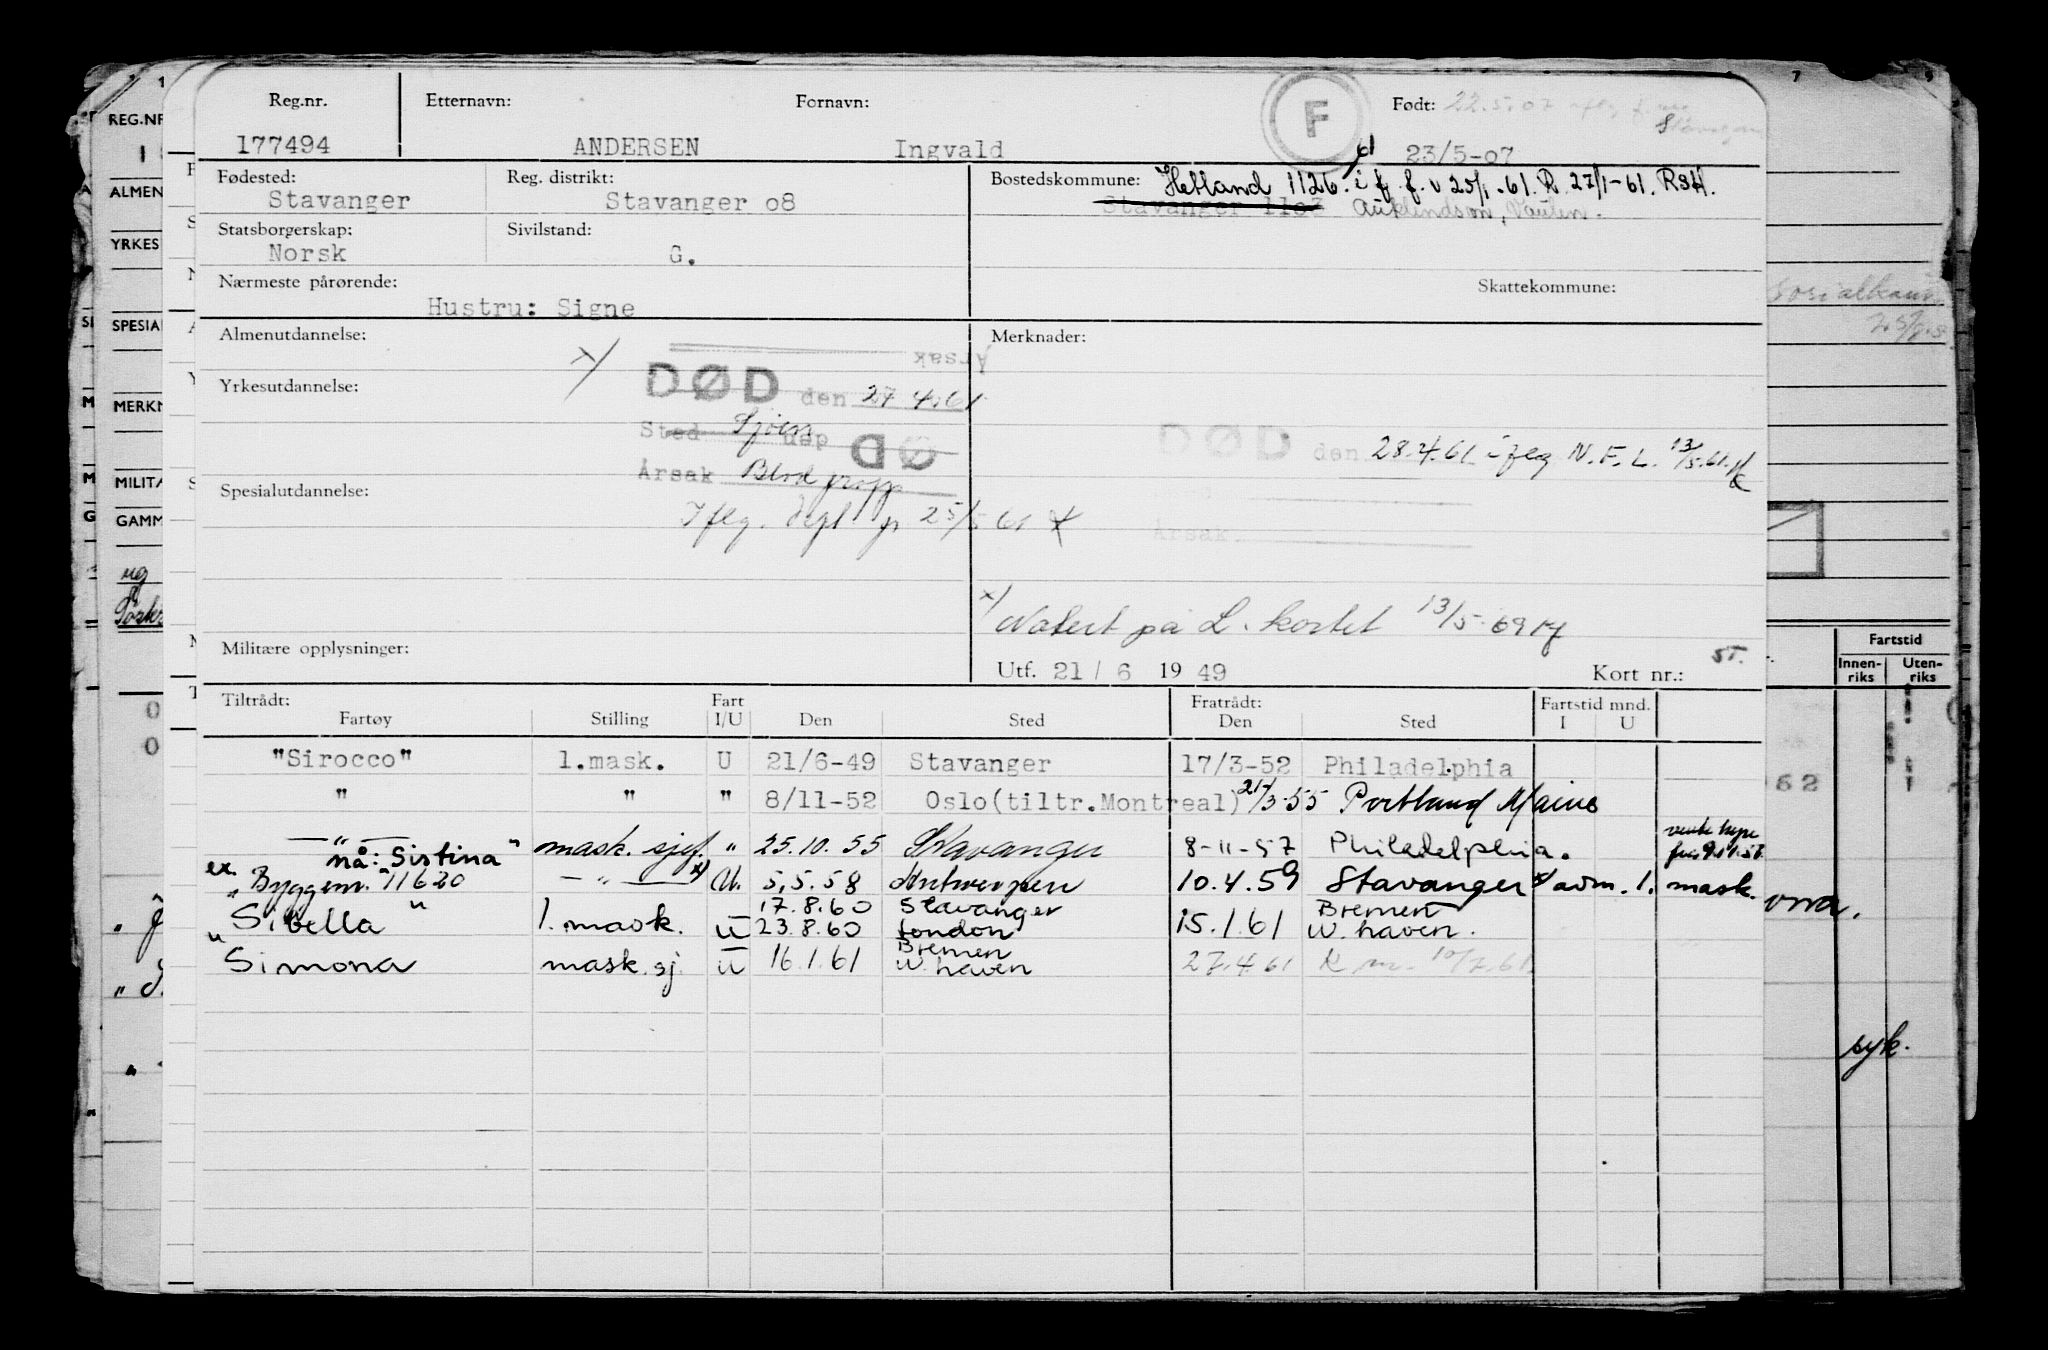 Reg.nr. Etternavn: Fornavn: F Født: 22.5.07
177494 ANDERSEN Ingvald 23/5-07
Fødested: Reg. distrikt: Bostedskommune: Hetland 1126. i f. f. v 25/1-61. R. 27/1-61. RSH.
Stavanger Stavanger o8 Stavanger 11o3 Auklendsvn, Vaulen.
Statsborgerskap: Sivilstand:
Norsk G.
Nærmeste pårørende: Skattekommune:
Hustru: Signe
Almenutdannelse: Merknader:
Årsak
x/ DØD den 27 4.61
Yrkesutdannelse:
Sted Sjøen DØ
DØD den 28.4.61 ifлg N.F.L. 13/5.61.
Årsak Blod propp
Spesialutdannelse:
Iflg. 25/5 61
Årsak
x/ Notert på L. kortet 13/5-69
Militære opplysninger:
Utf. 21 / 6 19 49 Kort nr.: ST.
Tiltrådt: Fart Fratrådt: Fartstid mnd.
Fartøy Stilling I/U Den Sted Den Sted I U
"Sirocco" 1.mask. U 21/6-49 Stavanger 17/3-52 Philadelphia
" " " 8/11-52 Oslo(tiltr.Montreal) 21/3-55 Portland Maine
—"— mask. sjef. " 25.10.55 Stavanger 8-11-57 Philadelphia.
nå: "Sistina"
ex. "Byggenr. 11620 —"— x) U. 5.5.58 Antwerpen 10.4.59 Stavanger x/ avm. 1. mask.
"Sibella" 1. mask. U 17.8.60 Stavanger 15.1.61 Bremen
23.8.60 London W.haven.
"Simona mask. sj. U 16.1.61 Bremen 27.4.61 10/7.61.
W.haven
REG.NR
ALMEN
YRKES
SPESIAL
MERKN
MILITÆ
GAMM
Fartstid
Innen-riks Uten-riks
962
syk.